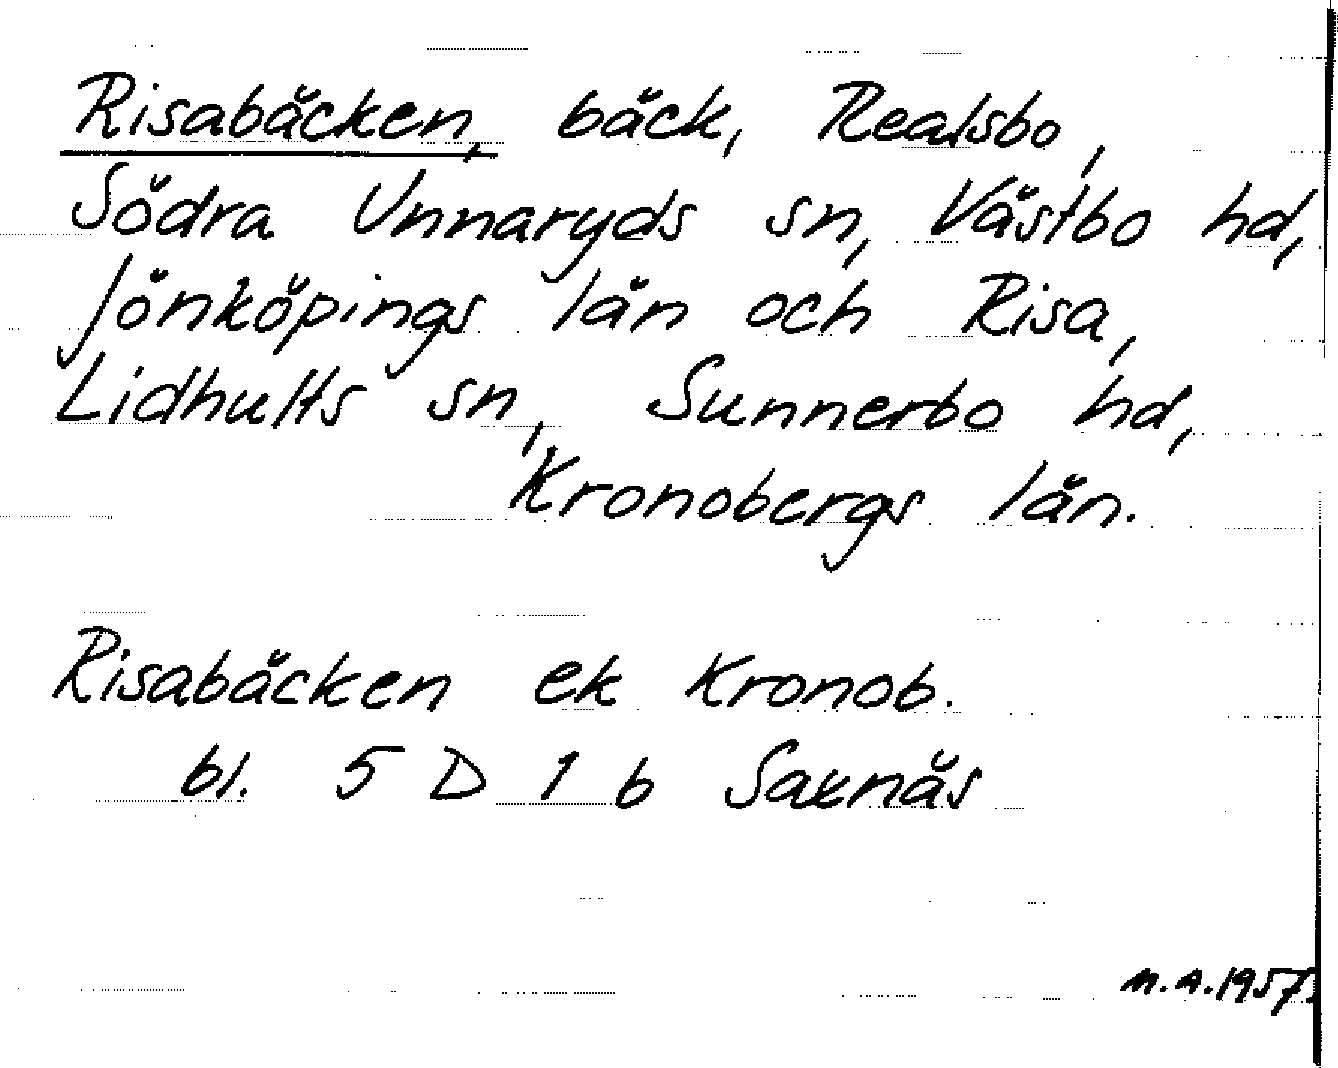 Risabäcken, bäck, Realsbo,
Södra Unnaryds sn, Västbo hd,
Jönköpings län och Risa,
Lidhults sn, Sunnerbo hd,
Kronobergs län.
Risabäcken ek Kronob.
bl. 5 D 1 b Saxnäs
M.A.1957.